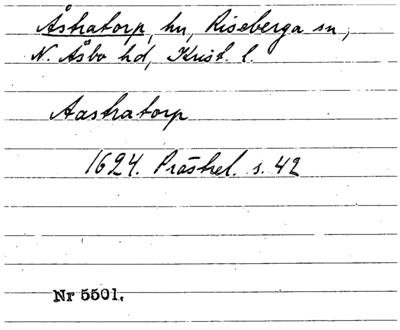 Åstratorp, hn, Riseberga sn,
N. Åsbo hd, Krist. l.
Aastratorp
1624. Prästrel. s. 42
Nr 5501.